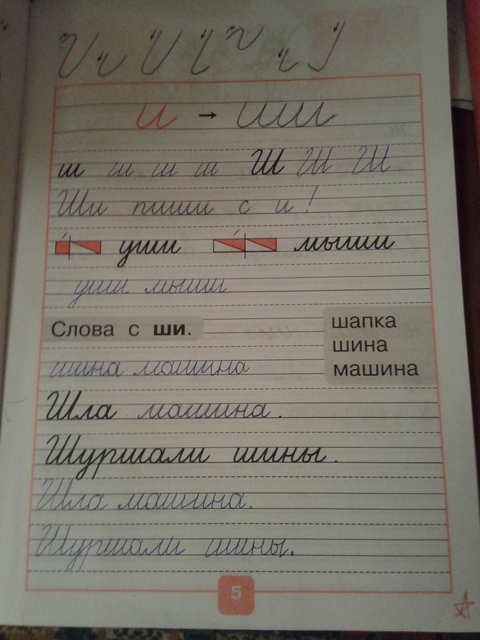 и → ши
ш ш ш ш Ш Ш Ш
Ши пиши с и!
уши мыши
уши мыши
Слова с ши.
шапка
шина
машина
шина машина
Шла машина.
Шуршали шины.
Шла машина.
Шуршали шины.
5